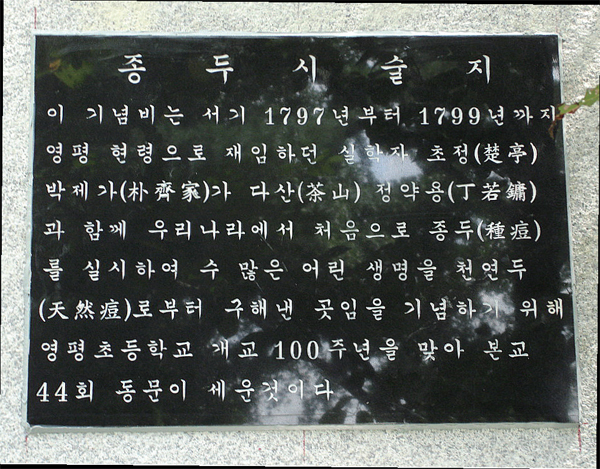 종 두 시 술 지
이 기념비는 서기 1797년부터 1799년까지
영평 현령으로 재임하던 실학자 초정(楚亭)
박제가(朴齊家)가 다산(茶山) 정약용(丁若鏞)
과 함께 우리나라에서 처음으로 종두(種痘)
를 실시하여 수 많은 어린 생명을 천연두
(天然痘)로부터 구해낸 곳임을 기념하기 위해
영평초등학교 개교 100주년을 맞아 본교
44회 동문이 세운것이다